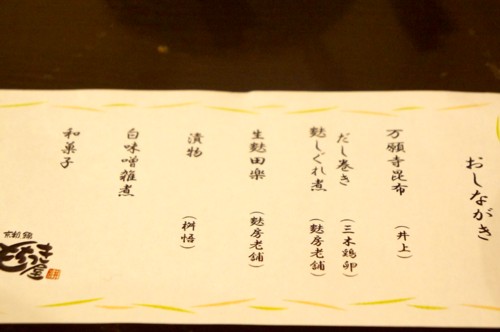 おしながき
万願寺昆布 （井上）
だし巻き （三木鶏卵）
麩しぐれ煮 （麩房老舗）
生麩田楽 （麩房老舗）
漬物 （桝悟）
白味噌雑煮
和菓子